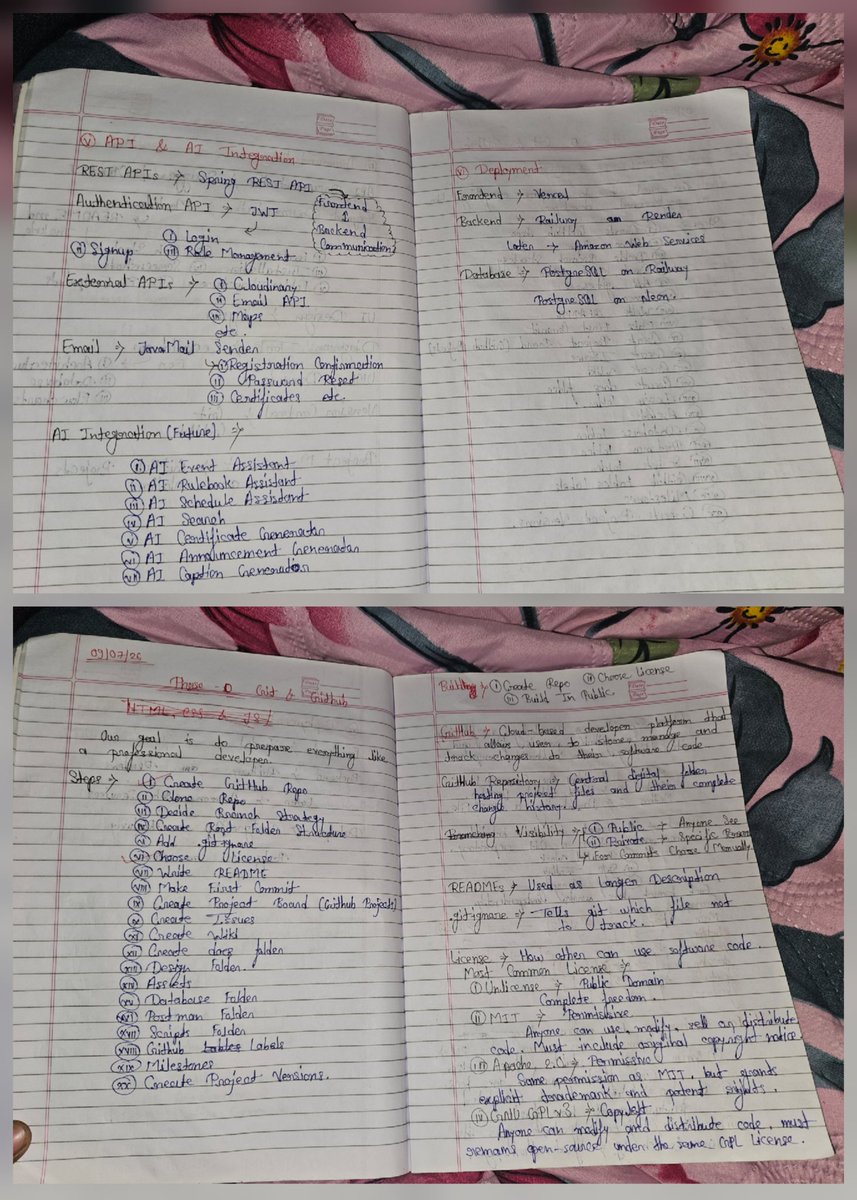 (v) API & AI Integration
REST APIs → Spring REST API
Authentication API → JWT
(i) Login
(ii) Signup (iii) Role Management
Frontend
↕
Backend
Communication
External APIs → (i) Cloudinary
(ii) Email API
(iii) Maps
etc.
Email → JavaMail Sender
→ (i) Registration Confirmation
(ii) Password Reset
(iii) Certificates etc.
AI Integration (Future) →
(i) AI Event Assistant
(ii) AI Rulebook Assistant
(iii) AI Schedule Assistant
(iv) AI Search
(v) AI Certificate Generator
(vi) AI Announcement Generator
(vii) AI Caption Generation
(vi) Deployment
Frontend → Vercel
Backend → Railway or Render
Later → Amazon Web Services
Database → PostgreSQL on Railway
PostgreSQL on Neon.
09/07/26
Phase - 0 Git & Github
HTML, CSS & JS
Our goal is to prepare everything like
a professional developer.
Steps → (i) Create GitHub Repo
(ii) Clone Repo
(iii) Decide Branch Strategy
(iv) Create Root Folder Structure
(v) Add .gitignore
(vi) Choose License
(vii) Write README
(viii) Make First Commit
(ix) Create Project Board (Github Projects)
(x) Create Issues
(xi) Create Wiki
(xii) Create docs folder
(xiii) Design Folder.
(xiv) Assets
(xv) Database Folder
(xvi) Postman Folder
(xvii) Scripts Folder
(xviii) Github Labels
(xix) Milestones
(xx) Create Project Versions.
Building → (i) Create Repo (ii) Choose License
(iii) Build In Public
GitHub → Cloud-based developer platform that
allows user to store, manage and
track changes to their software code
GitHub Repository → Central digital folder
holding project files and their complete
change history.
Visibility → (i) Public → Anyone See
(ii) Private → Specific Person
→ For Commits Choose Manually
READMEs → Used as Longer Description
.gitignore → Tells git which file not
to track.
License → How other can use software code.
Most Common License →
(i) Unlicense → Public Domain
Complete freedom.
(ii) MIT → Permissive
Anyone can use, modify, sell or distribute
code. Must include original copyright notice.
(iii) Apache 2.0 → Permissive
Same permission as MIT, but grants
explicit trademark and patent rights.
(iv) GNU GPL v3 → Copyleft
Anyone can modify and distribute code, must
remains open-source under the same GPL License.